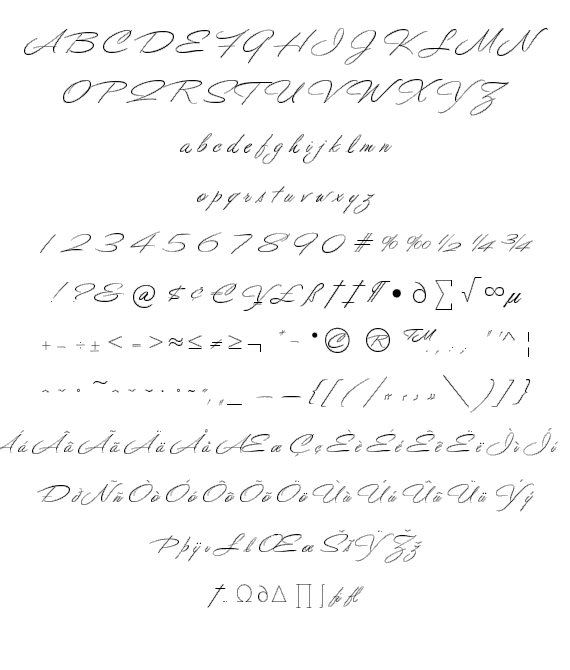 A B C D E F G H I J K L M N
O P Q R S T U V W X Y Z
a b c d e f g h i j k l m n
o p q r s t u v w x y z
1 2 3 4 5 6 7 8 9 0 # % ‰ ½ ¼ ¾
! ? & @ $ ¢ € ¥ £ ß † ‡ ¶ • ∂ ∑ √ ∞ µ
+ − ÷ ± < = > ≈ ≤ ≠ ≥ ¬ * - · © ® ™ . , : ; " ' ^ ¦
— – { [ ( / « ‹ › » \ ) ] }
Á á Â â Ã ã Ä ä Å å Æ æ Ç ç È è É é Ê ê Ë ë Ì ì Í í
Ð ð Ñ ñ Ò ò Ó ó Ô ô Õ õ Ö ö Ù ù Ú ú Û û Ü ü Ý ý
Þ þ ÿ ı Ł ł Œ œ Š š Ÿ Ž ž
† Ω ∂ ∆ ∏ ∫ fi fl